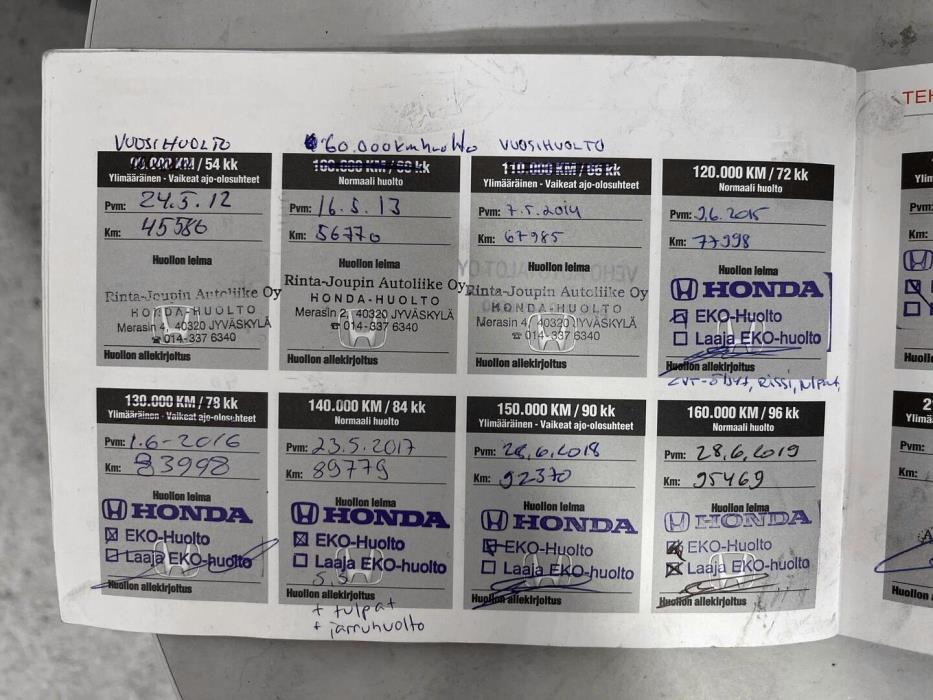 VUOSIHUOLTO
90.000 KM / 54 kk
Ylimääräinen - Vaikeat ajo-olosuhteet
Pvm: 24.5.12
Km: 45586
Huollon leima
Rinta-Joupin Autoliike Oy
HONDA-HUOLTO
Merasin 4, 40320 JYVÄSKYLÄ
☎ 014-337 6340
Huollon allekirjoitus
60.000km huolto
100.000 KM / 60 kk
Normaali huolto
Pvm: 16.5.13
Km: 56770
Huollon leima
Rinta-Joupin Autoliike Oy
HONDA-HUOLTO
Merasin 2, 40320 JYVÄSKYLÄ
☎ 014-337 6340
Huollon allekirjoitus
VUOSIHUOLTO
110.000 KM / 66 kk
Ylimääräinen - Vaikeat ajo-olosuhteet
Pvm: 7.5.2014
Km: 67985
Huollon leima
Rinta-Joupin Autoliike Oy
HONDA-HUOLTO
Merasin 4, 40320 JYVÄSKYLÄ
☎ 014-337 6340
Huollon allekirjoitus
120.000 KM / 72 kk
Normaali huolto
Pvm: 9.6.2015
Km: 77998
Huollon leima
HONDA
EKO-Huolto
Laaja EKO-huolto
Huollon allekirjoitus
130.000 KM / 78 kk
Ylimääräinen - Vaikeat ajo-olosuhteet
Pvm: 1.6-2016
Km: 83998
Huollon leima
HONDA
EKO-Huolto
Laaja EKO-huolto
Huollon allekirjoitus
140.000 KM / 84 kk
Normaali huolto
Pvm: 23.5.2017
Km: 89779
Huollon leima
HONDA
EKO-Huolto
Laaja EKO-huolto
Huollon allekirjoitus
+ tulpat
+ jarruhuolto
150.000 KM / 90 kk
Ylimääräinen - Vaikeat ajo-olosuhteet
Pvm: 28.6.2018
Km: 92370
Huollon leima
HONDA
EKO-Huolto
Laaja EKO-huolto
Huollon allekirjoitus
160.000 KM / 96 kk
Normaali huolto
Pvm: 28.6.2019
Km: 95469
Huollon leima
HONDA
EKO-Huolto
Laaja EKO-huolto
Huollon allekirjoitus